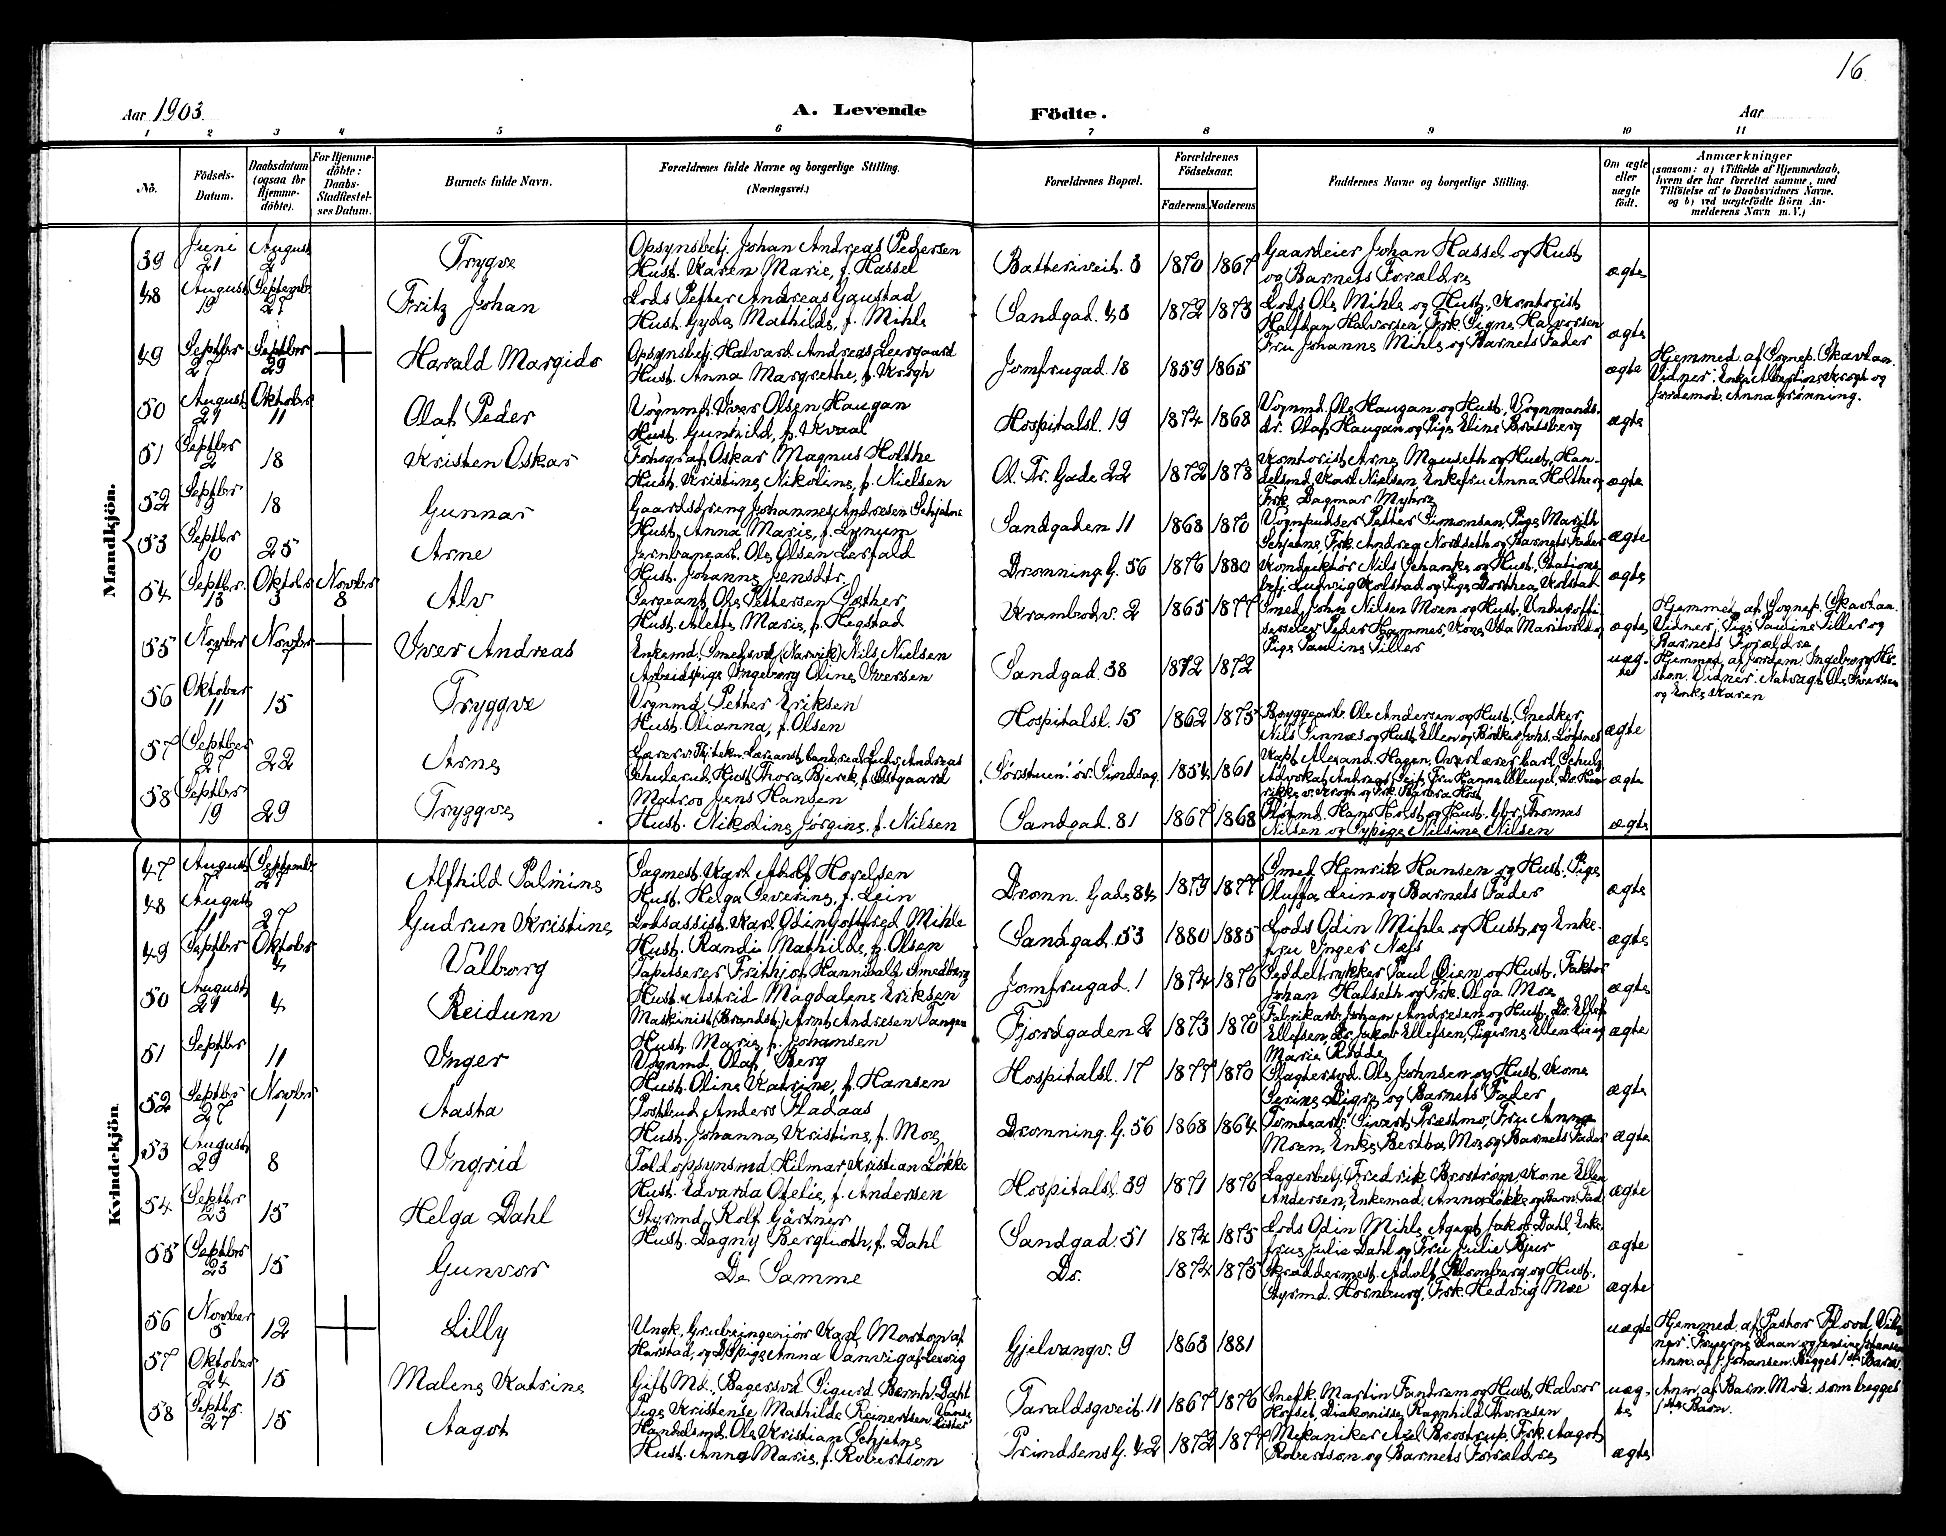 16
Aar 1903.
A. Levende Födte.
Aar
1 2 3 4 5 6 7 8 9 10 11
No.
Födsels-Datum.
Daabsdatum (ogsaa for Hjemme-döbte).
For Hjemme-döbte: Daabs-Stadfæstel-ses Datum.
Barnets fulde Navn.
Forældrenes fulde Navne og borgerlige Stilling. (Næringsvei.)
Forældrenes Bopæl.
Forældrenes Födselsaar.
Faderens. Moderens
Faddernes Navne og borgerlige Stilling.
Om ægte eller uægte födt.
Anmærkninger
(saasom: a) i Tilfælde af Hjemmedaab, hvem der har forrettet samme, med Tilföielse af to Daabsvidners Navne, og b) ved uægtefödte Börn An-melderens Navn m. V.)
Mandkjön.
39 Juni 21 August 2 Trygve
Opsynsbetj. Johan Andreas Pedersen
Hust. Karen Marie, f. Hassel
Batteriveit. 3 1870 1867
Gaardeier Johan Hassel og Hust.
og Barnets Forældre
ægte
48 August 19 Septemb. 27 Fritz Johan
Lods Petter Andreas Gaustad
Hust. Gyda Mathilde, f. Mihle
Sandgad. 43 1872 1873
Lods Ole Mihle og Hust., Kontorist
Halfdan Halvorsen, Frk. Signe Halvorsen
Fru Johanne Mihle og Barnets Fader
ægte
49 Septbr 27 Septbr 29 Harald Margido
Opsynsbetj. Halvard Andreas Leergaard
Hust. Anna Margrethe, f. Krogh
Jomfrugad. 18 1859 1865
ægte
Hjemmed. af Sognep. Skavlan.
Vidner: Enke Albertine Krogh og
Jordemod. Anna Grønning.
50 August 29 Oktober 11 Olaf Peder
Vognmd. Iver Olsen Haugan
Hust. Gunhild, f. Kvaal
Hospitalsl. 19 1874 1868
Vognmd. Ole Haugan og Hust., Vognmands-
dr. Olaf Haugan og Pige Eline Bratsberg
ægte
51 Septbr 2 18 Kristen Oskar
Fotograf Oskar Magnus Holthe
Hust. Kristine Nikoline, f. Nielsen
Ol. Tr. Gade 22 1872 1878
Kontorist Arne Mauseth og Hust., Han-
delsmd. Karl Nielsen, Enkefru Anna Holthe og
Frk. Dagmar Myhre
ægte
52 Septbr 9 18 Gunnar
Gaardsdreng Johannes Andresen Schjelne
Hust. Anna Marie, f. Lynum
Sandgaden 11 1868 1870
Vognpudser Petter Simonsen, Pige Marith
Schjelne, Frk. Andrea Nordseth og Barnets Fader
ægte
53 Septbr 10 25 Arne
Jernbanearb. Ole Olsen Lerfald
Hust. Johanne Jensdtr.
Dronning. G. 56 1876 1880
Konduktør Nils Schanke og Hust., Stations-
betj. Ludvig Kolstad og Pige Dorthea Kolstad
ægte
54 Septbr. 13 Oktobr 3 Novbr 8 Alv
Sergeant, Ole Pettersen Sæther
Hust. Alette Marie, f. Hegstad
Krambodv. 2 1865 1877
Smed John Nilsen Moen og Hust., Underoffi-
Pige Pauline Tiller
ægte
Hjemmed. af Sognep. Skavlan.
Vidner: Pige Pauline Tiller og
Barnets Forældre
55 Novbr 7 Novbr 7 Iver Andreas
Enkemd. Smedsvd. (Narvik) Nils Nielsen
Arbeidspige Ingeborg Oline Iversen
Sandgad. 38 1872 1872
uæg-
te
Hjemmed. af Jordem. Ingeborg
Vidner: Ole Iversen
og Enke Karen
56 Oktober 11 15 Tryggve
Vognmd. Petter Eriksen
Hust. Olianna, f. Olsen
Hospitalsl. 15 1862 1875
Bryggearb. Ole Andersen og Hust., Snedker
ægte
57 Septbr 27 22 Arne
1854 1861
ægte
58 Septbr 19 29 Tryggve
Matros Jens Hansen
Hust. Nikoline Jørgine, f. Nilsen
Sandgad. 81 1867 1868
Hans Holst og Hust., Gbr. Thomas
Nilsen og Sypige Nilsine Nilsen
ægte
Kvindekjön
47 August 7 Septembr. 27 Alfhild Palmine
Sagmest. Karl Adolf Horelsen
Hust. Helga Severine, f. Lein
Dronn. Gade 84 1879 1877
Smed Henrik Hansen og Hust., Pige
Oluffa Lein og Barnets Fader
ægte
48 August 11 27 Gudrun Kristine
Lodsassist. Karl Odin Gotfred Mihle
Hust. Randi Mathilde, f. Olsen
Sandgad. 53 1880 1885
Lods Odin Mihle og Hust. og Enke-
fru Inger Næs
ægte
49 Septbr 1 Oktober 4 Valborg
Tapetserer Frithjof Hannibal Smedberg
Hust. Astrid Magdalene Eriksen
Jomfrugad. 1 1874 1876
Seddeltrykker Paul Øien og Hust., Faktor
Johan Halseth og Frk. Olga Moe
ægte
50 August 29 4 Reidunn
Maskinist (Brandst.) Arnt Andresen Tangen
Hust. Marie, f. Johansen
Fjordgaden 2 1873 1870
Fabrikarb. Johan Andresen og Hust., Do. Ellef
Ellefsen, Do. Jakob Ellefsen, Pigerne Ellen Lund og
Marie Rødde
ægte
51 Septbr 7 11 Inger
Vognmd. Olaf Berg
Hust. Oline Katrine, f. Hansen
Hospitalsl. 17 1877 1870
Slagtersvd. Ole Johnsen og Hust., Kone
Serine Digre og Barnets Fader
ægte
52 Septbr 27 Novbr 1 Aasta
Postbud Anders Stadaas
Hust. Johanna Kristine, f. Moe
Dronning. G. 56 1868 1864
Tomtearb. Sivert Præstmo, Fru Anna
Moen, Enke Bertha Moe og Barnets Fader
ægte
53 August 29 8 Ingrid
Toldopsynsmd. Hilmar Kristian Løkke
Hust. Edvarda Ofelie, f. Andersen
Hospitalsl. 39 1871 1876
Lagerbetj. Fredrik Brostrøm, Kone Ellen
Andersen, Enkemad. Anna Løkke og Barn. Fad.
ægte
54 Septbr 23 15 Helga Dahl
Styrmd. Rolf Gärtner
Hust. Dagny Berglioth, f. Dahl
Sandgad. 51 1874 1875
Lods Odin Mihle, Agent Jakob Dahl, Enke-
frue Julie Dahl og Fru Julie Bjur
ægte
55 Septbr 23 15 Gunvor
De Samme
Do. 1874 1875
Skræddermest. Adolf Blomberg og Hust.
Styrmd. Hornburg, Frk. Hedvig Moe
ægte
56 Novber 5 12 Lilly
Ungk. Grubeingeniør Karl
Harstad, og Pige Anna Vanvig af Lexvig
Gjelvangv. 9 1863 1881
uægte
Hjemmed. af Pastor Flood. Vid-
Anm. af J. Johansen. Begges 1ste Barn.
57 Oktober 24 15 Malene Katrine
Gift Md., Bagersvd. Sigurd Bernh. Dahl
Pige Kristense Mathilde Reinertsen
Taraldsgveit. 11 1867 1876
Snedk. Martin Tandrem og Hust., Halvor
Hofset, Diakonisse Ragnhild Thoresen
uæg-
te
Anm. af Barn. Mod. som begges
1ste Barn.
58 Septbr. 27 15 Aagot
Handelsmd. Ole Kristian Schjelne
Hust. Anna Marie, f. Robertson
Prindsens G. 42 1872 1877
Mekaniker Axel Brostrup, Frk. Aagot
Robertson og Barnets Forældre
ægte